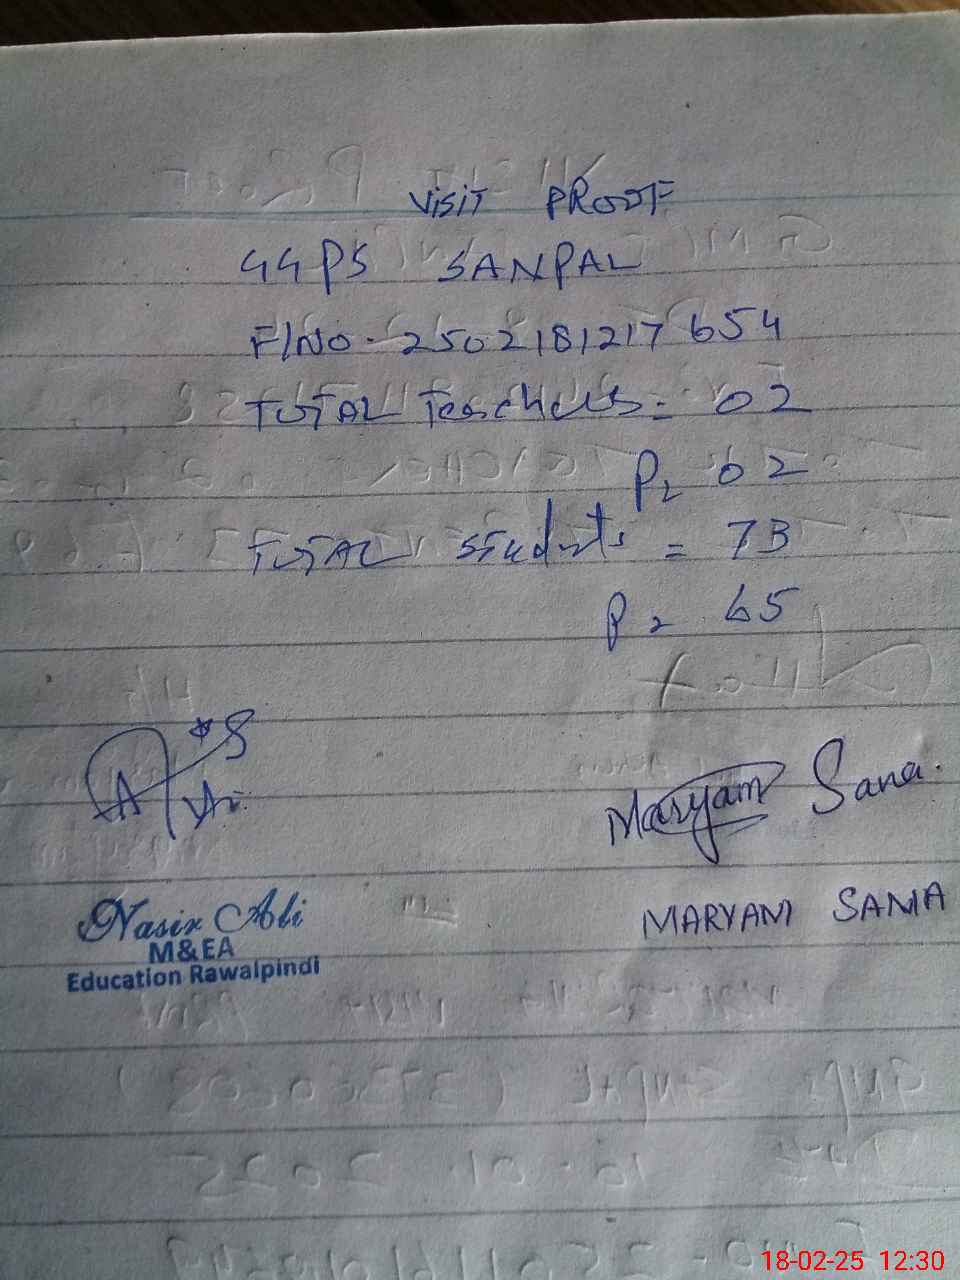 VISIT PROOF
GGPS SANPAL
F/NO. 2502181217654
TOTAL Teachers = 02
P = 02
TOTAL students = 73
P = 65
Maryam Sana.
Nasir Ali
M&EA
Education Rawalpindi
MARYAM SANA
18-02-25 12:30